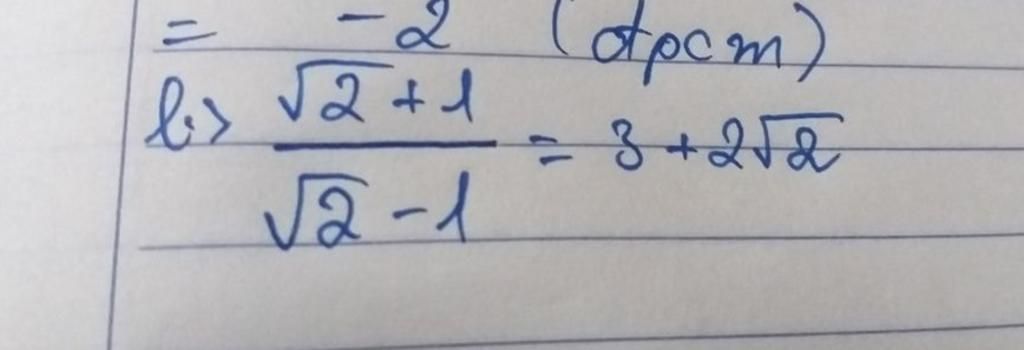 = -2 (đpcm)
b.> (√2 + 1)/(√2 - 1) = 3 + 2√2